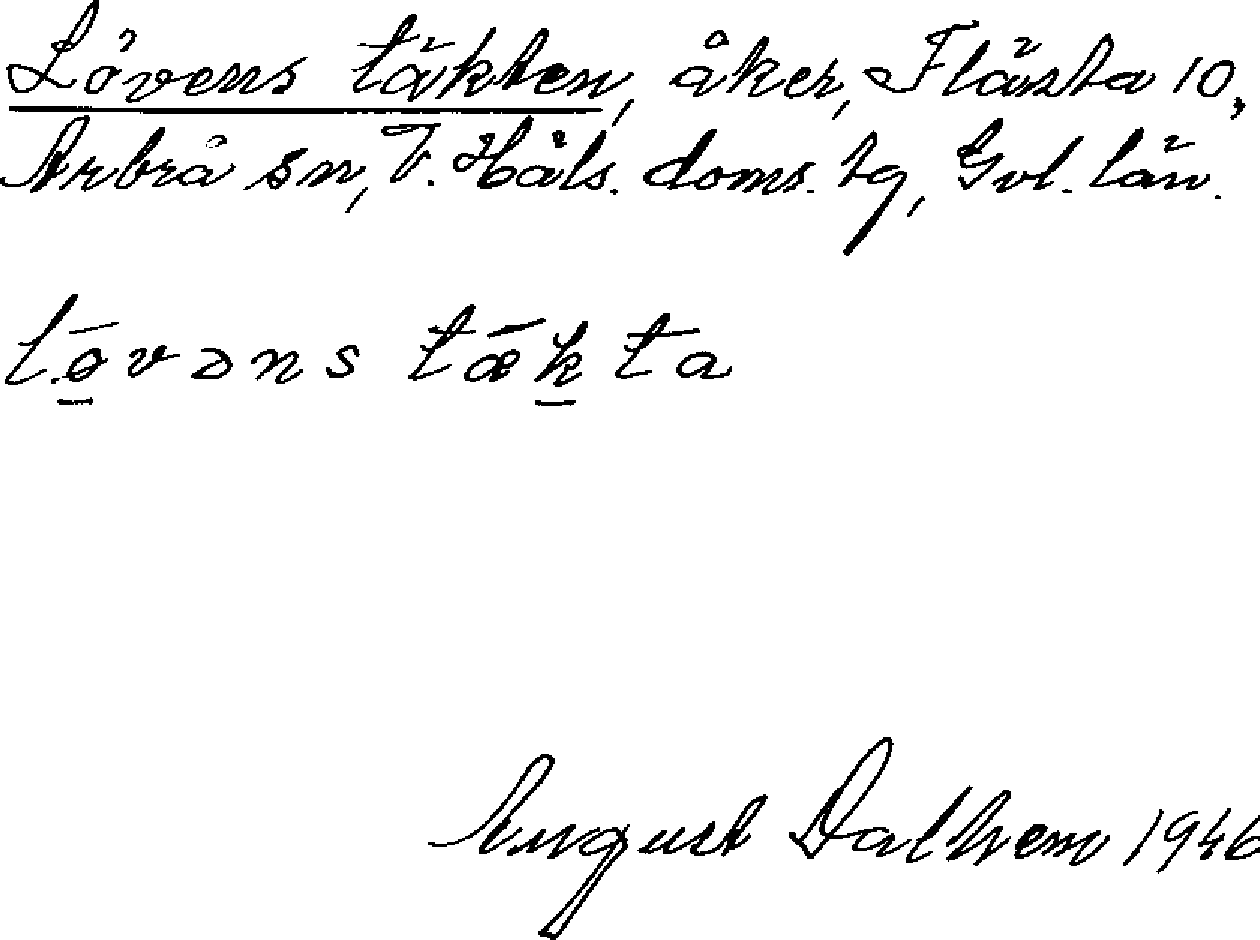 Lövens täkten, åker, Flästa 10,
Arbrå sn, V. Häls. doms. tg, Gvl. län.
lø̄vəns tǣkta
August Dalhem 1946